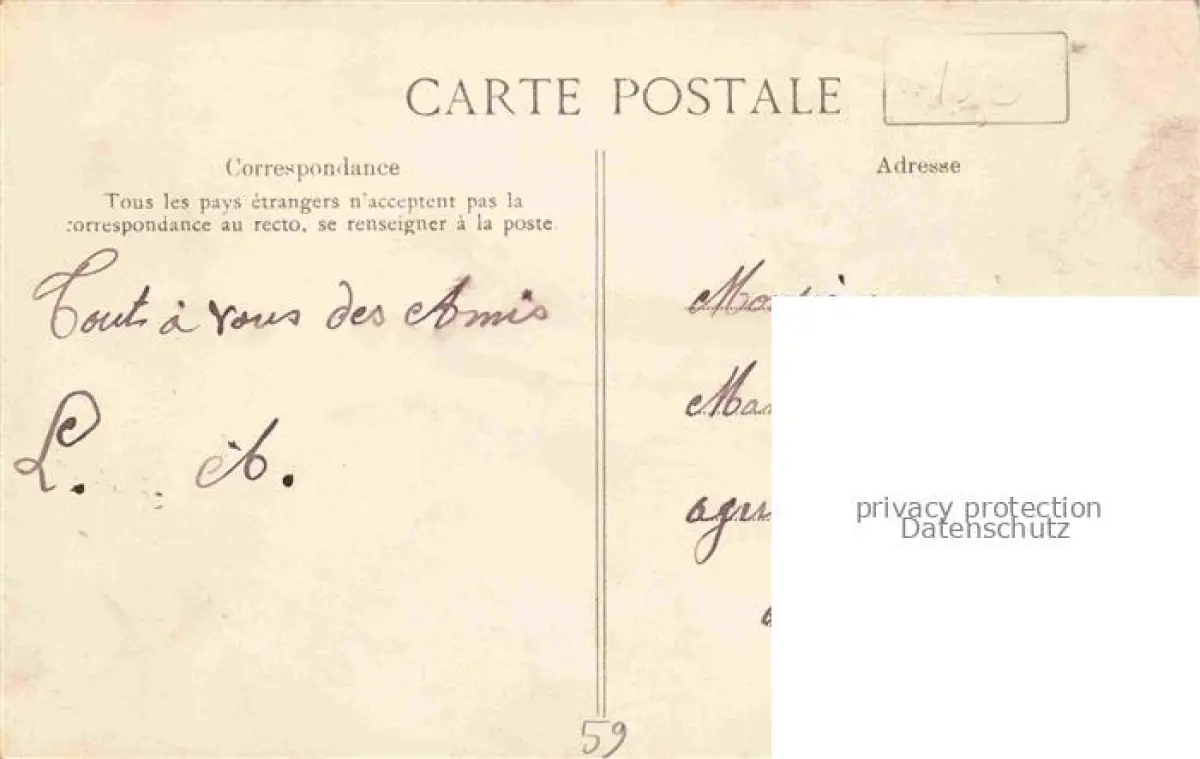 CARTE POSTALE
Correspondance
Tous les pays étrangers n'acceptent pas la
correspondance au recto, se renseigner à la poste.
Tout à vous des Amis
L. A.
Adresse
privacy protection
Datenschutz
59